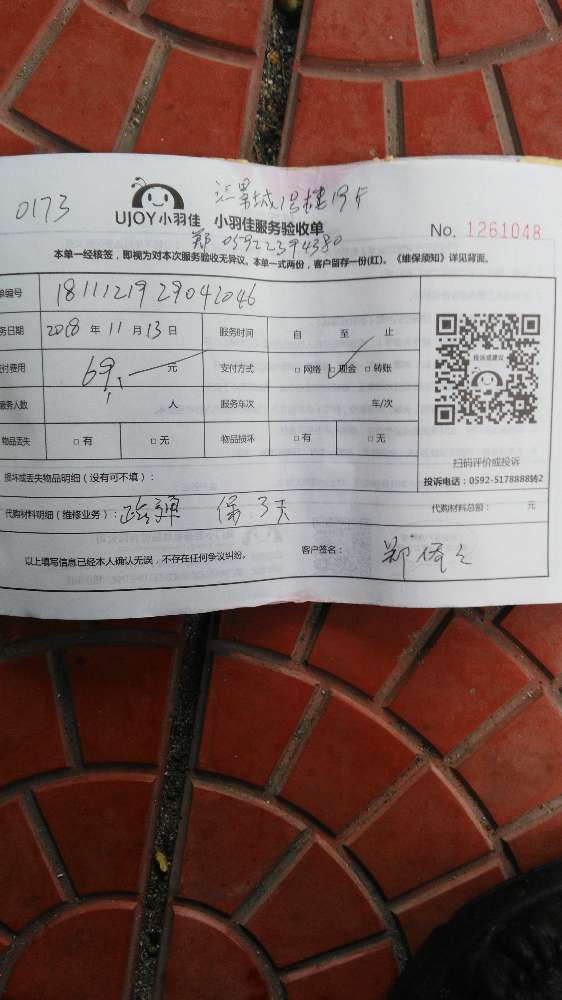 0173
1号楼19F
UJOY小羽佳 小羽佳服务验收单
郑 05922394380
No. 1261048
本单一经核签，即视为对本次服务验收无异议。本单一式两份，客户留存一份(红)。《维保须知》详见背面。
单编号 1811121929041046
务日期 2018 年 11 月 13 日 服务时间 自 至 止
付费用 69 元 支付方式 □ 网络 □ 现金 □ 转账
服务人数 人 服务车次 车/次
物品丢失 □ 有 □ 无 物品损坏 □ 有 □ 无
投诉或建议
扫码评价或投诉
投诉电话：0592-5178888转2
损坏或丢失物品明细（没有可不填）：
代购材料明细（维修业务）： 保3天 代购材料总额： 元
以上填写信息已经本人确认无误，不存在任何争议纠纷。 客户签名： 郑